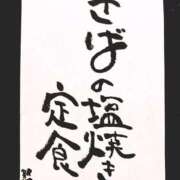 さばの塩焼き
定食